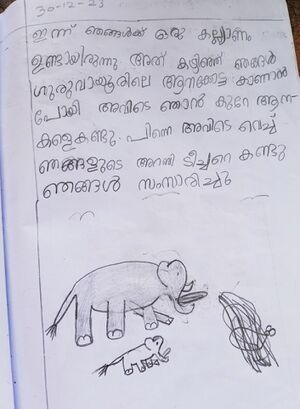 30-12-23
ഇന്ന് ഞങ്ങൾക്ക് ഒരു കല്ല്യാണം
ഉണ്ടായിരുന്നു അത് കഴിഞ്ഞ് ഞങ്ങൾ
ഗുരുവായൂരിലെ ആനക്കോട്ട കാണാൻ
പോയി അവിടെ ഞാൻ കുറേ ആന
കളെകണ്ടു. പിന്നെ അവിടെ വെച്ച്
ഞങ്ങളുടെ ടീച്ചറെ കണ്ടു
ഞങ്ങൾ സംസാരിച്ചു